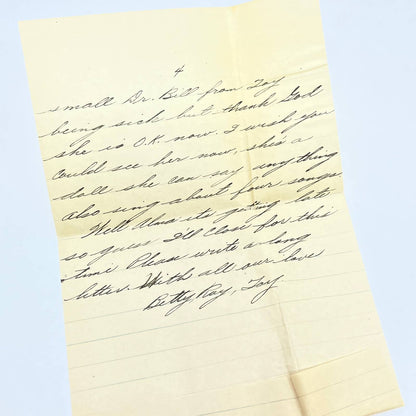 4
small Dr. Bill from Joy
being sick but thank God
she is O.K. now. I wish you
could see her now, she's a
doll she can say anything
also sing about four songs.
Well Alma its getting late
so guess I'll close for this
time Please write a long
letter. With all our love
Betty, Ray, Joy.